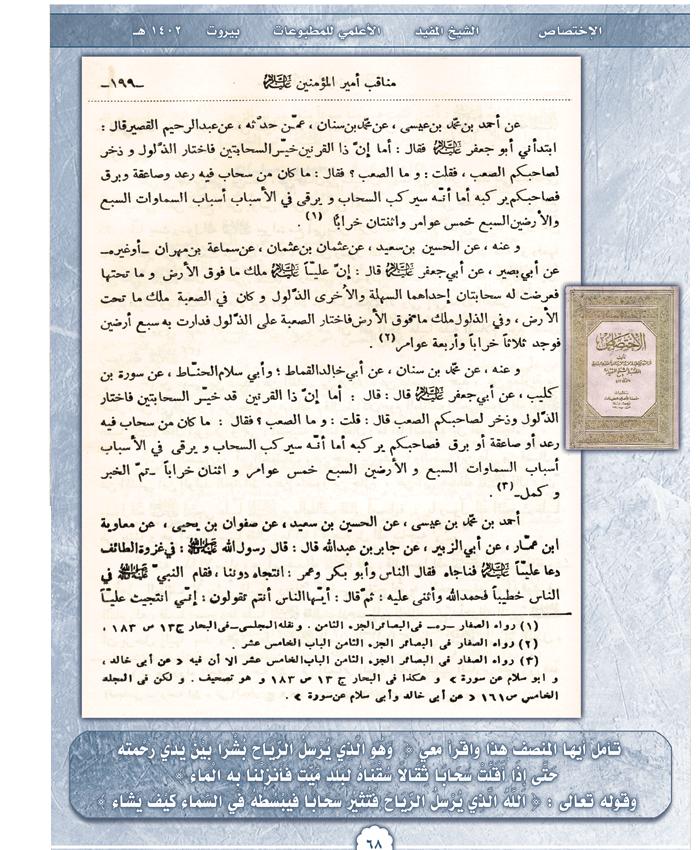 الإختصاص الشيخ المفيد الأعلمي للمطبوعات بيروت ١٤٠٢ هـ
مناقب أمير المؤمنين عليه السلام -١٩٩-
عن أحمد بن محمّد بن عيسى ، عن محمّد بن سنان ، عمّن حدّثه ، عن عبدالرحيم القصير قال :
ابتدأني أبو جعفر عليه السلام فقال : أما إنّ ذا القرنين خيّر السحابتين فاختار الذّلول و ذخر
لصاحبكم الصعب ، فقلت : و ما الصعب ؟ فقال : ما كان من سحاب فيه رعد وصاعقة وبرق
فصاحبكم يركبه أما أنّه سيركب السحاب و يرقى في الأسباب أسباب السماوات السبع
والأرضين السبع خمس عوامر واثنتان خراباً (١) .
و عنه ، عن الحسين بن سعيد ، عن عثمان بن عثمان ، عن سماعة بن مهران -أوغيره-
عن أبي بصير ، عن أبي جعفر عليه السلام قال : إنّ عليّاً عليه السلام ملك ما فوق الأرض و ما تحتها
فعرضت له سحابتان إحداهما السهلة والأخرى الذّلول و كان في الصعبة ملك ما تحت
الأرض ، وفي الذلول ملك ما فوق الأرض فاختار الصعبة على الذّلول فدارت به سبع أرضين
فوجد ثلاثاً خراباً وأربعة عوامر (٢) .
و عنه ، عن محمّد بن سنان ، عن أبي خالد القماط ؛ وأبي سلام الحنّاط ، عن سورة بن
كليب ، عن أبي جعفر عليه السلام قال : قال : أما إنّ ذا القرنين قد خيّر السحابتين فاختار
الذّلول وذخر لصاحبكم الصعب قال : قلت : و ما الصعب ؟ فقال : ما كان من سحاب فيه
رعد أو صاعقة أو برق فصاحبكم يركبه أما أنّه سيركب السحاب و يرقى في الأسباب
أسباب السماوات السبع و الأرضين السبع خمس عوامر و اثنان خراباً -تمّ الخبر
و كمل- (٣) .
أحمد بن محمّد بن عيسى ، عن الحسين بن سعيد ، عن صفوان بن يحيى ، عن معاوية
ابن عمّار ، عن أبي الزبير ، عن جابر بن عبدالله قال : قال رسول الله صلى الله عليه وآله : في غزوة الطائف
دعا عليّاً عليه السلام فناجاه فقال الناس وأبو بكر وعمر : انتجاه دوننا ، فقام النبيّ صلى الله عليه وآله في
الناس خطيباً فحمدالله وأثنى عليه : ثمّ قال : أيّها الناس أنتم تقولون : إنّي انتجيت عليّاً
(١) رواه الصفار -ره- في البصائر الجزء الثامن . ونقله المجلسي-في البحار ج١٣ ص ١٨٣ ،
(٢) رواه الصفار في البصائر الجزء الثامن الباب الخامس عشر .
(٣) رواه الصفار في البصائر الجزء الثامن الباب الخامس عشر الا أن فيه « عن أبي خالد ،
و ابو سلام عن سورة » و هكذا في البحار ج ١٣ ص ١٨٣ و هو تصحيف . و لكن في المجلد
الخامس ص ١٦١ « عن أبي خالد وأبي سلام عن سورة » .
الاختصاص
تأمل أيها المنصف هذا واقرأ معي ﴿ وَهُوَ الَّذِي يُرْسِلُ الرِّيَاحَ بُشْرًا بَيْنَ يَدَيْ رَحْمَتِهِ
حَتَّى إِذَا أَقَلَّتْ سَحَابًا ثِقَالًا سُقْنَاهُ لِبَلَدٍ مَيِّتٍ فَأَنْزَلْنَا بِهِ الْمَاءَ ﴾
وقوله تعالى : ﴿ اللَّهُ الَّذِي يُرْسِلُ الرِّيَاحَ فَتُثِيرُ سَحَابًا فَيَبْسُطُهُ فِي السَّمَاءِ كَيْفَ يَشَاءُ ﴾
٦٨